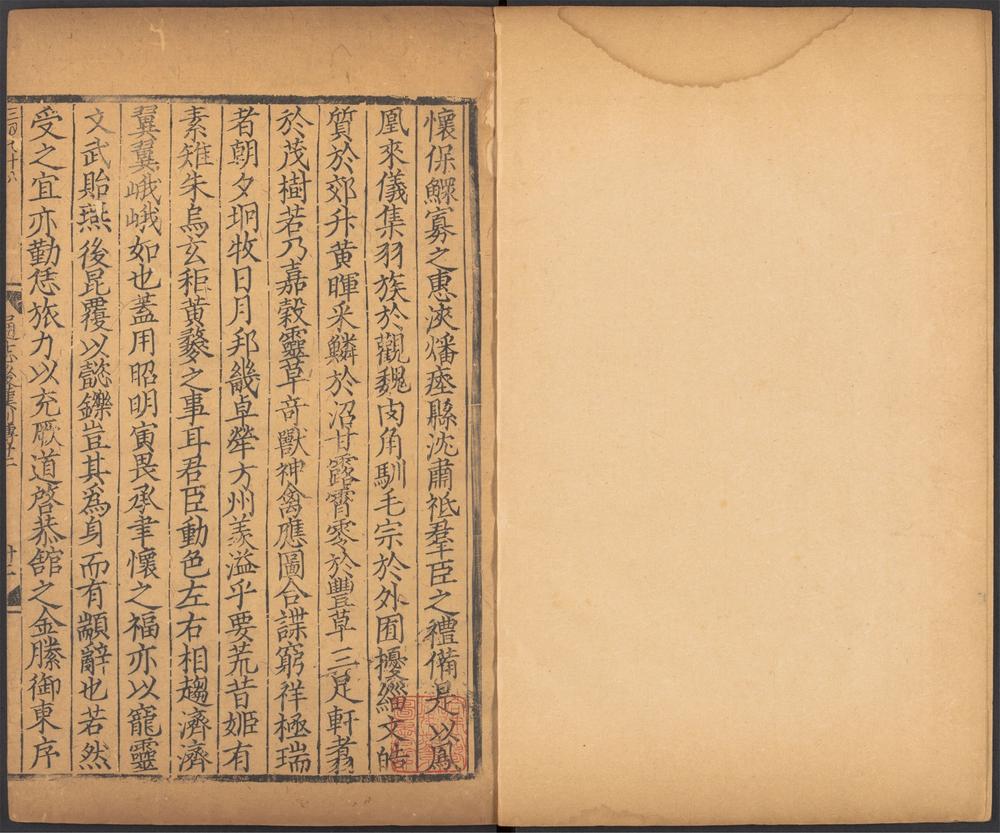 懷保鰥寡之惠浹燔瘞縣沈肅祗羣臣之禮備是以鳳
凰來儀集羽族於觀魏肉角馴毛宗於外囿擾緇文皓
質於郊升黃暉采鱗於沼甘露霄零於豐草三足軒翥
於茂樹若乃嘉穀靈草奇獸神禽應圖合諜窮祥極瑞
者朝夕坰牧日月邦畿卓犖方州羨溢乎要荒昔姬有
素雉朱烏玄秬黃麰之事耳君臣動色左右相趨濟濟
翼翼峨峨如也蓋用昭明寅畏承聿懷之福亦以寵靈
文武貽燕後昆覆以懿鑠豈其為身而有顓辭也若然
受之宜亦勤恁旅力以充厥道啓恭舘之金縢御東序